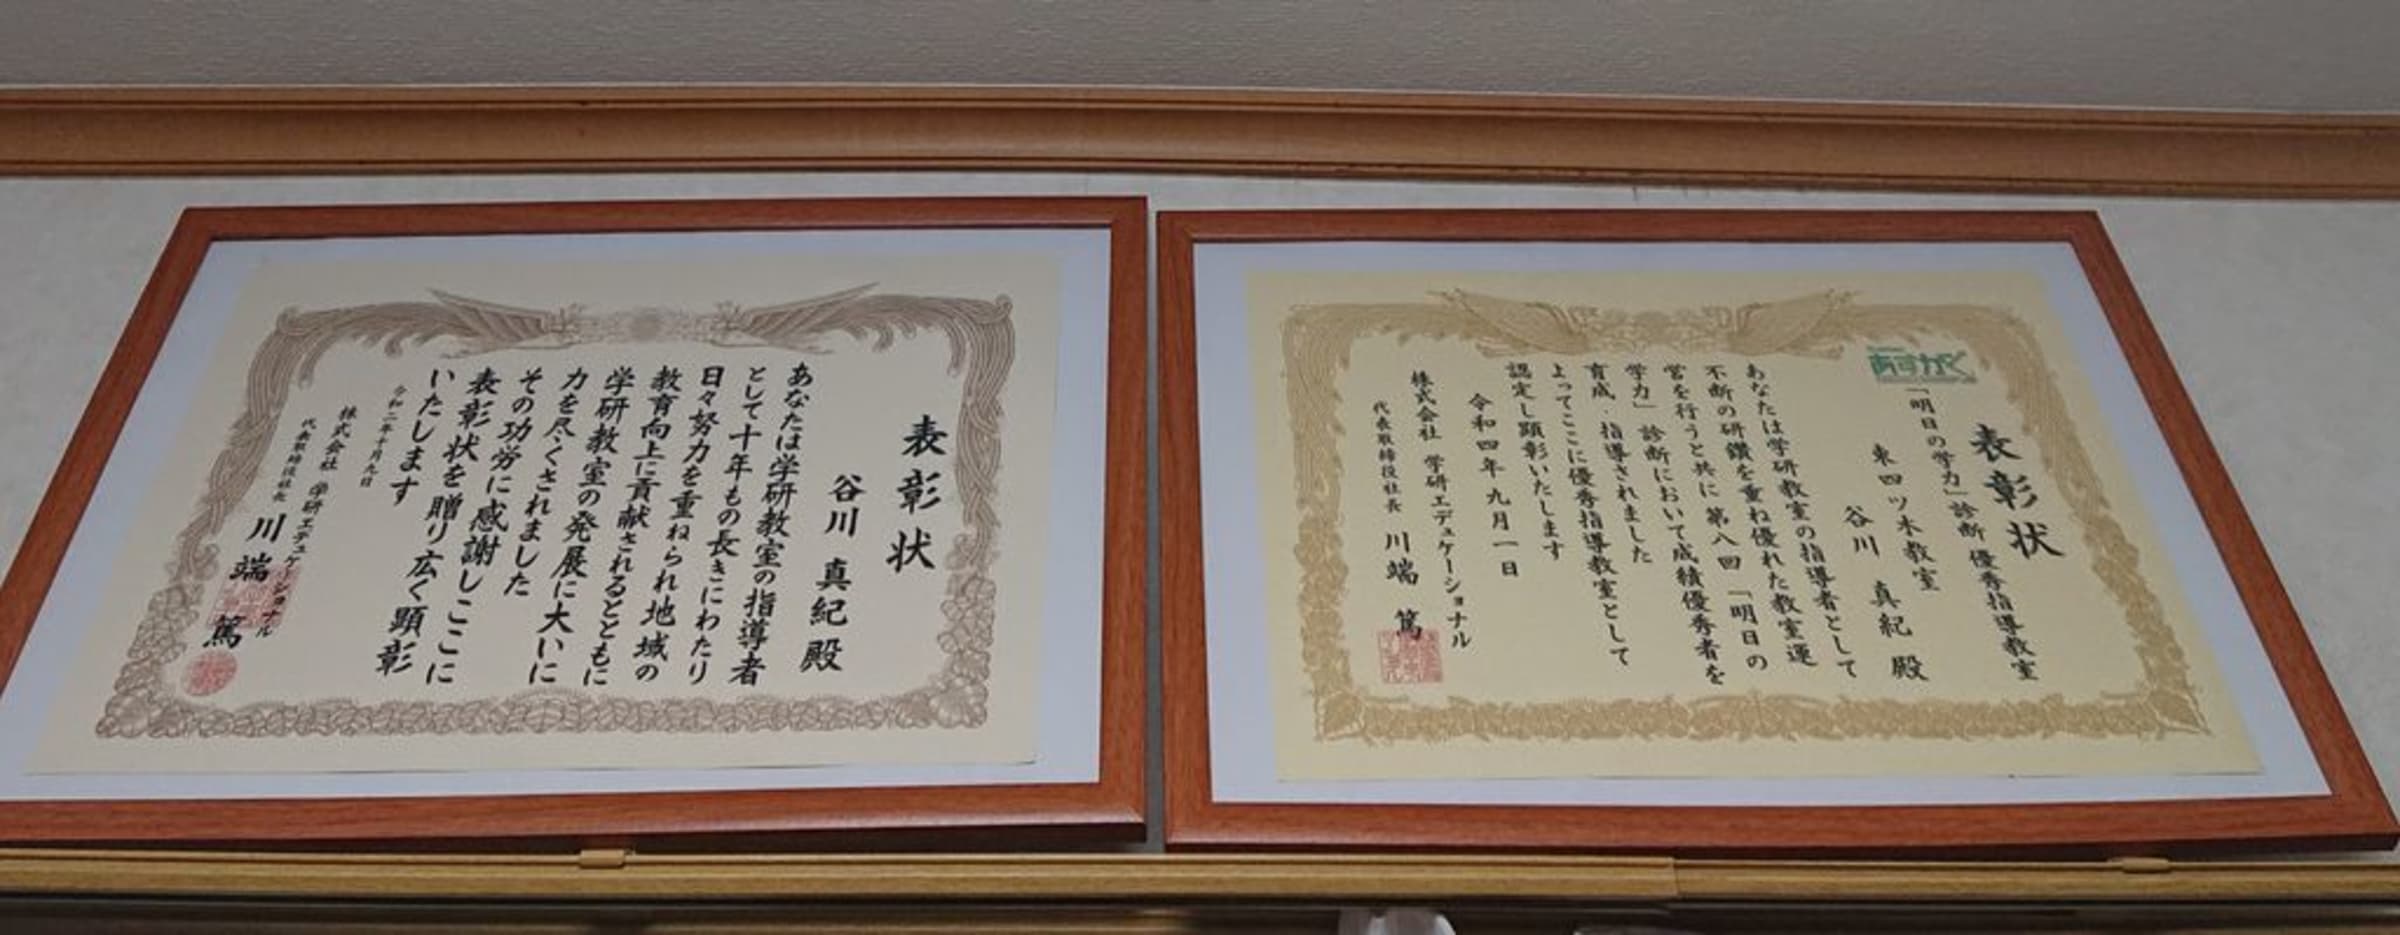 表彰状
谷川 真紀 殿
あなたは学研教室の指導者
として十年もの長きにわたり
日々努力を重ねられ地域の
教育向上に貢献されるとともに
学研教室の発展に大いに
力を尽くされました
その功労に感謝しここに
表彰状を贈り広く顕彰
いたします
令和二年十月九日
株式会社 学研エデュケーショナル
代表取締役社長 川端 篤
あすがく
表彰状
「明日の学力」診断 優秀指導教室
東四ツ木教室
谷川 真紀 殿
あなたは学研教室の指導者として
不断の研鑽を重ね優れた教室運
営を行うと共に第八回「明日の
学力」診断において成績優秀者を
育成・指導されました
よってここに優秀指導教室として
認定し顕彰いたします
令和四年九月一日
株式会社 学研エデュケーショナル
代表取締役社長 川端 篤